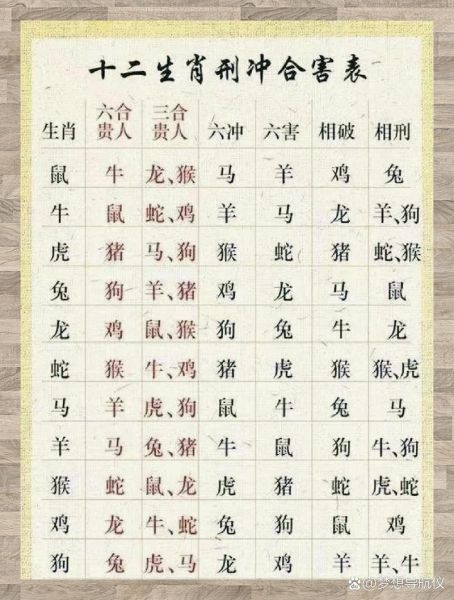 十二生肖刑冲合害表
生肖 六合贵人 三合贵人 六冲 六害 相破 相刑
鼠 牛 龙、猴 马 羊 鸡 兔
牛 鼠 蛇、鸡 羊 马 龙 羊、狗
虎 猪 马、狗 猴 蛇 猪 蛇、猴
兔 狗 羊、猪 鸡 龙 马 鼠
龙 鸡 鼠、猴 狗 兔 牛 龙
蛇 猴 牛、鸡 猪 虎 猴 猴、虎
马 羊 虎、狗 鼠 牛 兔 马
羊 马 兔、猪 牛 鼠 狗 牛、狗
猴 蛇 鼠、龙 虎 猪 蛇 虎、蛇
鸡 龙 牛、蛇 兔 狗 鼠 鸡
狗 兔 虎、马 龙 鸡 羊 羊、牛
@梦想导航仪